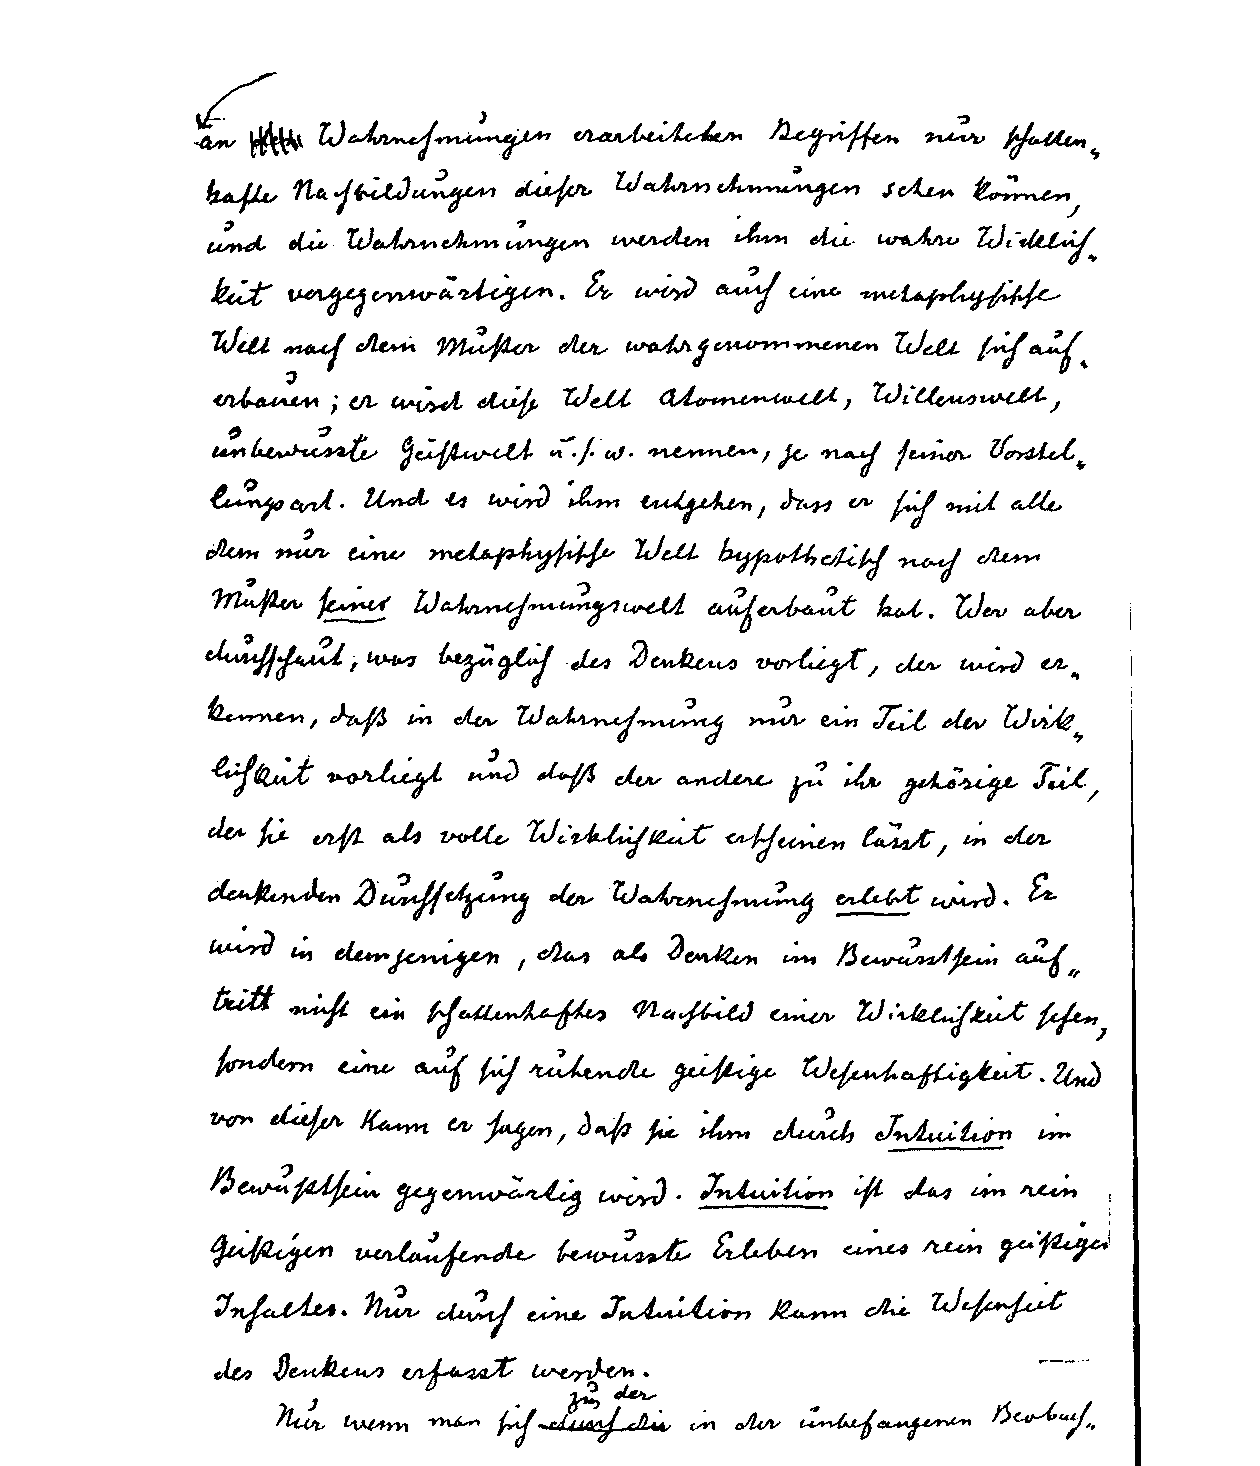 an Wahrnehmungen erarbeiteten Begriffen nur schatten-
hafte Nachbildungen dieser Wahrnehmungen sehen können,
und die Wahrnehmungen werden ihm die wahre Wirklich-
keit vergegenwärtigen. Er wird auch eine metaphysische
Welt nach dem Muster der wahrgenommenen Welt sich auf-
erbauen; er wird diese Welt Atomenwelt, Willenswelt,
unbewusste Geistwelt u.s.w. nennen, je nach seiner Vorstel-
lungsart. Und es wird ihm entgehen, dass er sich mit alle
dem nur eine metaphysische Welt hypothetisch nach dem
Muster seiner Wahrnehmungswelt auferbaut hat. Wer aber
durchschaut, was bezüglich des Denkens vorliegt, der wird er-
kennen, daß in der Wahrnehmung nur ein Teil der Wirk-
lichkeit vorliegt und daß der andere zu ihr gehörige Teil,
der sie erst als volle Wirklichkeit erscheinen lässt, in der
denkenden Durchsetzung der Wahrnehmung erlebt wird. Er
wird in demjenigen, das als Denken im Bewusstsein auf-
tritt nicht ein schattenhaftes Nachbild einer Wirklichkeit sehen,
sondern eine auf sich ruhende geistige Wesenhaftigkeit. Und
von dieser kann er sagen, daß sie ihm durch Intuition im
Bewußtsein gegenwärtig wird. Intuition ist das im rein
Geistigen verlaufende bewusste Erleben eines rein geistigen
Inhaltes. Nur durch eine Intuition kann die Wesenheit
des Denkens erfasst werden.
zu der
Nur wenn man sich durch die in der unbefangenen Beobach-